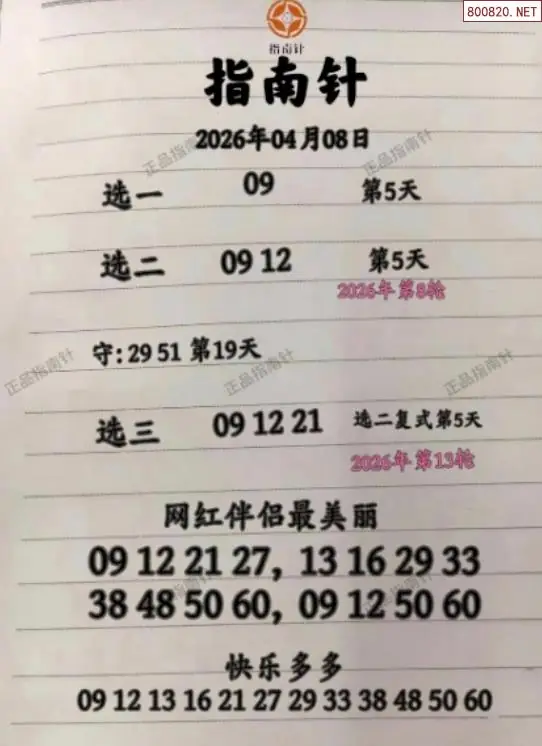 800820.NET
指南针
指南针
2026年04月08日
选一 09 第5天
选二 09 12 第5天
2026年第8轮
守:29 51 第19天
选三 09 12 21 选二复式第5天
2026年第13轮
网红伴侣最美丽
09 12 21 27, 13 16 29 33
38 48 50 60, 09 12 50 60
快乐多多
09 12 13 16 21 27 29 33 38 48 50 60
正品指南针
正品指南针
正品指南针
正品指南针
正品指南针
正品指南针
正品指南针
正品指南针